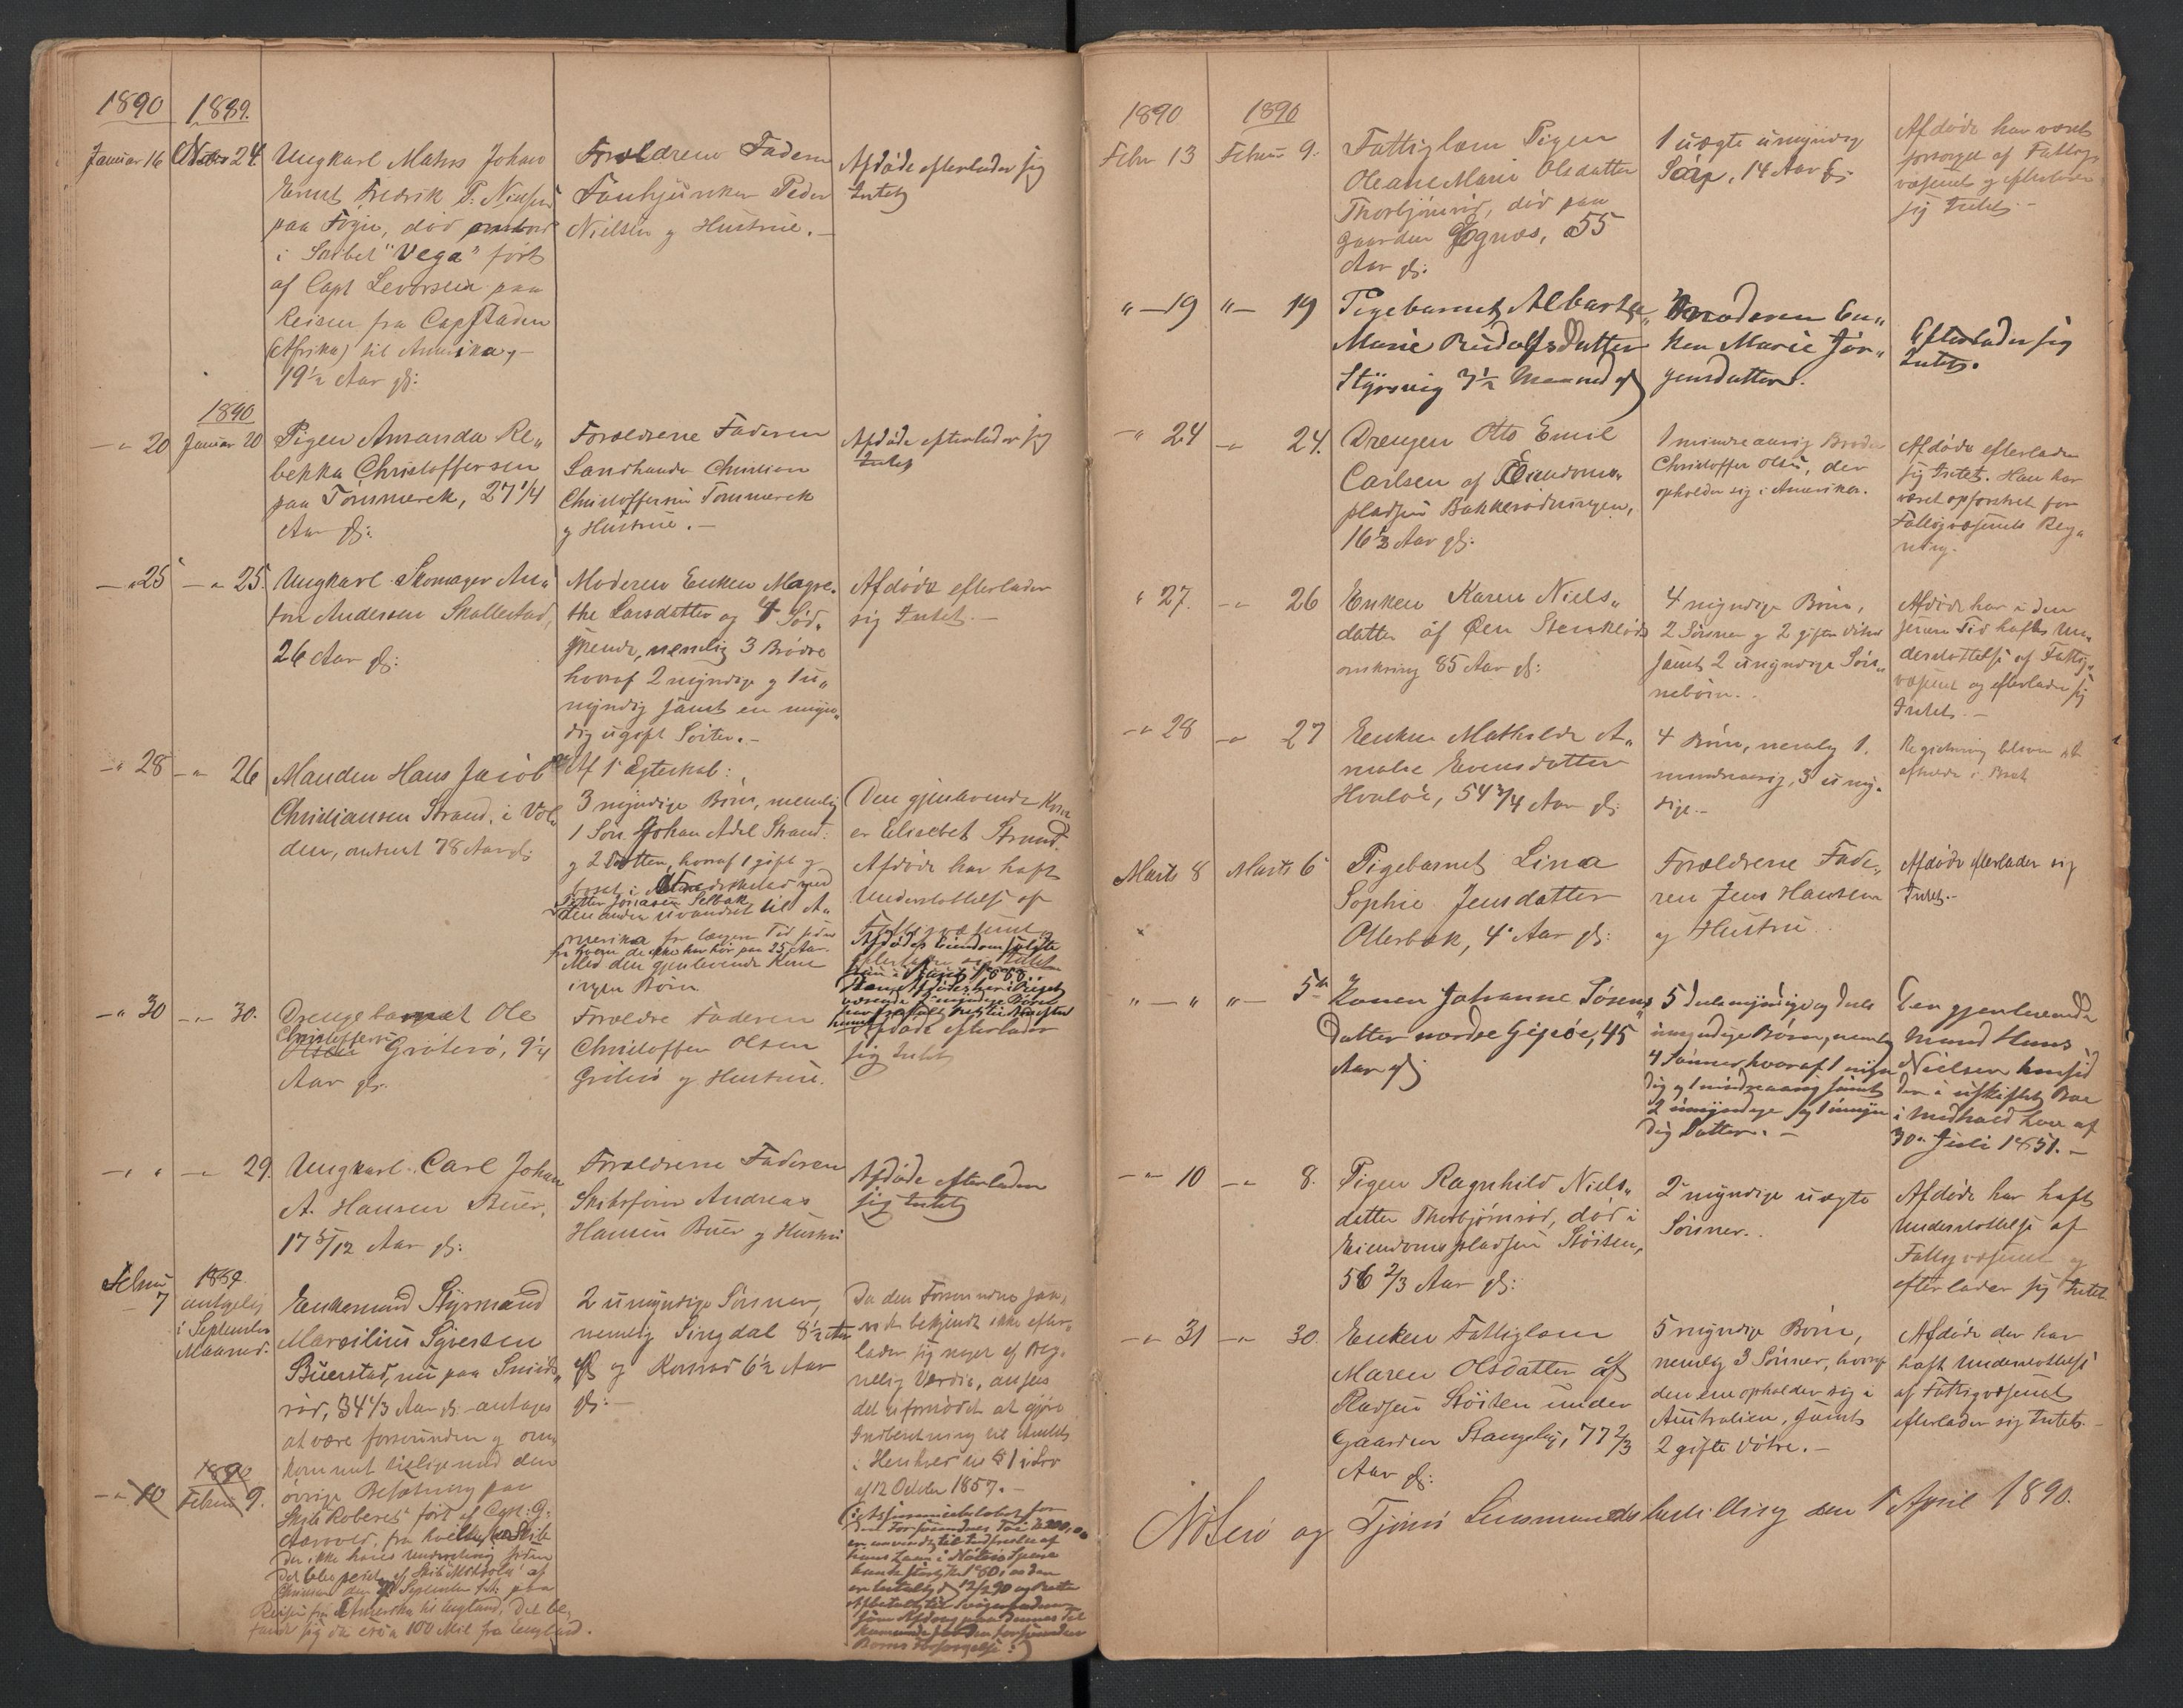 1890
1889.
Januar 16
24.
Ungkarl Matros Johan
Ernst Fredrik P. Nielsen
paa Föien, död ombord
i Skibet "Vega" fört
af Capt Levorsen paa
Reisen fra Capstaden
(Afrika) til Amerika,
19 1/2 Aar gl:
Forældrene Faderen
Fanejunker Peder
Nielsen og Hustrue.
Afdöde efterlader sig
Intet
1890
-„- 20
Januar 20
Pigen Amanda Re„
bekka Christoffersen
paa Tommerek, 27 1/4
Aar gl:
Forældrene Faderen
Landhandler Christian
Christoffersen Tommerek
og Hustrue.
Afdöde efterlader sig
Intet
-„ 25
-„ 25.
Ungkarl Skomager An„
ton Andersen Skallestad,
26 Aar gl:
Moderen Enken Magre„
the Larsdatter og 4 Söd„
skende, nemlig 3 Brödre
hvoraf 2 myndige og 1 u„
myndig samt en umyn„
dig ugift Söster.
Afdöde efterlader
sig Intet.
-„ 28
-„ 26
Manden Hans Jacob
Christiansen Strand, i Vol„
den, omtrent 78 Aar gl:
Af 1' Ægteskab:
3 myndige Börn, nemlig
1 Sön Johan Adel Strand:
og 2 Döttre, hvoraf 1 gift og
bosat i Fredrikstad med
Petter Jonasen Selbak
den anden udvandret til A„
merika for længere Tid siden
fra hvem de ikke har hör paa 25 Aar.
Med den gjenlevende Kone
ingen Börn
Den gjenlevende Kone
er Elisebet Strand.
Afdöde har haft
Understöttelse af
Fattigvæsenet
Afdödes Eiendom solgte
efterlader sig Intet
-„ 30
-„ 30.
Drengebarnet Ole
Christoffersen
Olsen Gröterö, 9 1/4
Aar gl:
Forældre Faderen
Christoffer Olsen
Gröterö og Hustrue.
Afdöde efterlader
sig Intet
-„ „
-„ 29.
Ungkarl Carl Johan
A. Hansen Buer,
17 5/12 Aar gl:
Forældrene Faderen
Skibsförer Andreas
Hansen Buer og Hustru
Afdöde efterlader
sig Intet
Februar
7
1889.
antagelig
i September
Maaned.
Enkemand Styrmand
Marsilius Syversen
Buerstad, nu paa Smids„
röd, 34 1/3 Aar gl: antages
at være forsvunden og om„
kommet tillige med den
övrige Besætning paa
Skib "Roberts" fört af Capt: G:
Aarvold, fra hvilket Skib
der ikke haves Underretning siden
det blev seiet af Skib
den September f.A: paa
Reisen fra Amerika til England, det be„
fandt sig da circa 100 Mil fra England.
2 umyndige Sönner,
nemlig Singdal 8 1/2 Aar
gl og Konrad 6 1/2 Aar
gl:
Da den Forsvundne saa„
vidt bekjendt ikke efter„
lader sig noget af Beg„
nelig Værdie, ansees
det ufornödent at gjöre
Indberetning til Amtet
i Henhold til § 1 i Lov
af 12 October 1857.
-„ 10
1890
Februar 9.
1890
1890
Febr 13
Februar 9.
Fattiglem Pigen
Oleane Marie Olsdatter
Thorbjönröd, död paa
Gaarden Ögnæs, 55
Aar gl:
1 uægte umyndig
Sön, 14 Aar gl:
Afdöde har været
forsörget af Fattig„
væsenet og efterlader
sig Intet.
„ — 19
„ — 19
Pigebarnet Albertha
Marie Rudolfsdatter
Styrsvig 3 1/2 Maaned gl
Moderen En„
ken Marie Jör„
gensdatter.
Efterlader sig
Intet.
-„ 24
-„ 24.
Drengen Otto Emil
Carlsen af Eiendoms„
pladsen Bakkerödningen,
16 1/2 Aar gl:
1 mindreaarig Broder
Christoffer Olsen, der
opholder sig i Amerika.
Afdöde efterlader
sig Intet. Han har
været opfostret for
Fattigvæsenets Reg„
ning.
„ 27.
-„ 26
Enken Karen Niels„
datter af Öen Stenklöds
omkring 85 Aar gl:
4 myndige Börn,
2 Sönner og 2 gifte Dötre
samt 2 umyndige Sön„
neborn.
Afdöde har i den
senere Tid haft Un„
derstöttelse af Fattig„
væsenet og efterlader sig
Intet.
-„ 28
-„ 27
Enken Mathilde A„
malie Evensdatter
Hvalöe, 54 3/4 Aar gl:
4 Börn, nemlig 1
mindreaarig, 3 umyn„
dige.
Registrering bliver at
afholde i Boet
Marts 8
Marts 6
Pigebarnet Lina
Sophie Jensdatter
Ollerbæk, 4 Aar gl:
Forældrene Fade„
ren Jens Hansen
og Hustru
Afdöde efterlader sig
Intet.
„ — „
„ — 5
Konen Johanne Sörens„
datter nordre Gipöe, 45
Aar gl
5 dels myndige og dels
umyndige Börn, nemlig
4 Sönner, hvoraf 1 myn
dig og 1 mindreaarig samt
2 umyndige og 1 umyn
dig Datter.
Den gjenlevende
Mand Hans
Nielsen hensid
der i uskiftet Boe
i Medhold Lov af
30te Juli 1851.
-„- 10
-„ 8.
Pigen Ragnhild Niels„
datter Thorbjörnröd, död i
Eiendomspladsen Stöiten,
56 2/3 Aar gl:
2 myndige uægte
Sönner.
Afdöde har haft
Understöttelse af
Fattigvæsenet og
efterlader sig Intet
-„ 31
-„ 30.
Enken Fattiglem
Maren Olsdatter af
Pladsen Stöiten under
Gaarden Stangeby, 77 2/3
Aar gl:
5 myndige Börn,
nemlig 3 Sönner, hvoraf
den ene opholder sig i
Australien, samt
2 gifte Dötre.
Afdöde der har
haft Understöttelse
af Fattigvæsenet
efterlader sig Intet.
Nöterö og Tjömö Lensmandsbestilling den 1 April 1890.